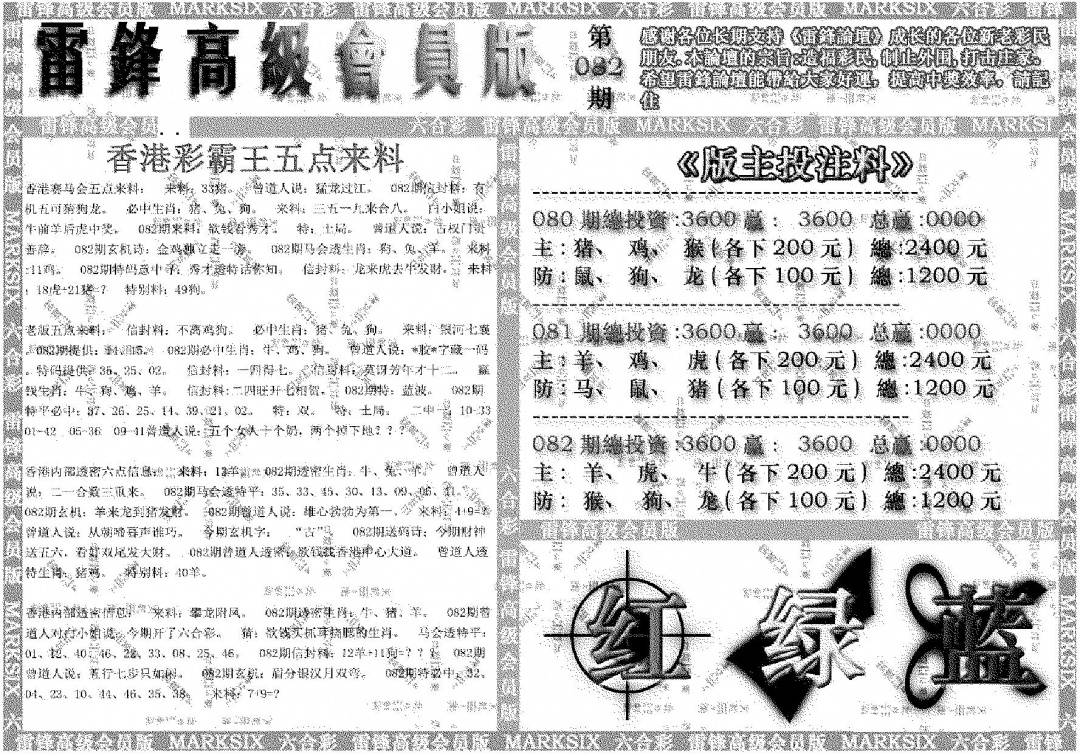 雷锋高级会员版 MARKSIX 六合彩 雷锋高级会员版 MARKSIX 六合彩 雷锋高级会员版 MARKSIX 六合彩 雷锋
雷鋒高級會員版
第
082
期
感谢各位长期支持《雷鋒論壇》成长的各位新老彩民
朋友,本論壇的宗旨:造福彩民,制止外国,打击庄家。
希望雷鋒論壇能帶給大家好運，提高中獎效率，請記
住
雷锋高级会员
六合彩 雷锋高级会员版 MARKSIX 六合彩 雷锋高级会员版 MARKSI
香港彩霸王五点来料
香港赛马会五点来料： 来料：33猪。 曾道人说：猛龙过江。 082期信封料：有
机五可猜狗龙。 必中生肖：猪、兔、狗。 来料：三五一九来合八。 白小姐说：
牛前羊后虎中奖。 082期来料：欲钱看秀才。 特：土局。 曾道人说：古权门贵
善辞。 082期玄机诗：金鸡独立走一海。 082期马会透生肖：狗、兔、羊。 来料
:11鸡。 082期特码意中寻：秀才透特话你知。 信封料：龙来虎去牛发财。 来料
：18虎+21猪=？ 特别料：49狗。
老版五点来料： 信封料：不离鸡狗。 必中生肖：猪、兔、狗。 来料：银河七襄
。082期提供：04.05。 082期必中生肖：牛、鸡、狗。 曾道人说：*胶*字藏一码
。特码提供：35、25、02。 信封料：一四得七。 信马料：莫讶芳年才十二。 赢
钱生肖：牛、狗、鸡、羊。 信封料：二四旺开七相贺。 082期特：蓝波。 082期
特平必中：37、26、25、14、39、21、02。 特：双。 特：土局。 二中一：10-33
01-42 05-36 09-41曾道人说：五个女人十个奶，两个掉下地？？？
香港内部透密六点信息： 来料：12羊。 082期透密生肖：牛、兔、羊。 曾道人
说：二一合数三重来。 082期马会透特平：35、33、45、30、13、09、06、41。
082期玄机：羊来龙到猪发财。 082期曾道人说：雄心勃勃为第一。 来料：4+9=？
曾道人说：从朝啼暮声谁巧。 今期玄机字： “吉” 082期送码诗：今期财神
送五六，看好双尾发大财。 082期曾道人透密：欲钱载香港中心大道。 曾道人透
特生肖：猪鸡。 特别料：40羊。
香港内部透密信息： 来料：攀龙附凤。 082期透密生肖：牛、猪、羊。 082期曾
道人对白小姐说：今期开了六合彩。 猜：欲钱买抓耳挠腮的生肖。 马会透特平：
01、12、40、46、22、33、08、25、46。 082期信封料：12羊+11狗=？？？ 082期
曾道人说：五行七步只如闲。 082期玄机：眉分银汉月双弯。 082期特必中：32、
04、23、10、44、46、35、38。 来料：7+9=？
《版主投注料》
080 期總投资:3600 赢： 3600 总赢:0000
主：猪、 鸡、 猴(各下 200 元) 總:2400 元
防：鼠、 狗、 龙(各下 100 元) 總:1200 元
081 期總投资:3600 赢： 3600 总赢:0000
主：羊、 鸡、 虎(各下 200 元) 總:2400 元
防：马、 鼠、 猪(各下 100 元) 總:1200 元
082 期總投资:3600 赢： 3600 总赢:0000
主：羊、 虎、 牛(各下 200 元) 總:2400 元
防：猴、 狗、 龙(各下 100 元) 總:1200 元
雷锋高级会员版 MARKSIX 六合彩 雷锋高级会员版
红 绿 蓝
雷锋高级会员版 MARKSIX 六合彩 雷锋高级会员版 MARKSIX 六合彩 雷锋高级会员版 MARKSIX 六合彩 雷锋